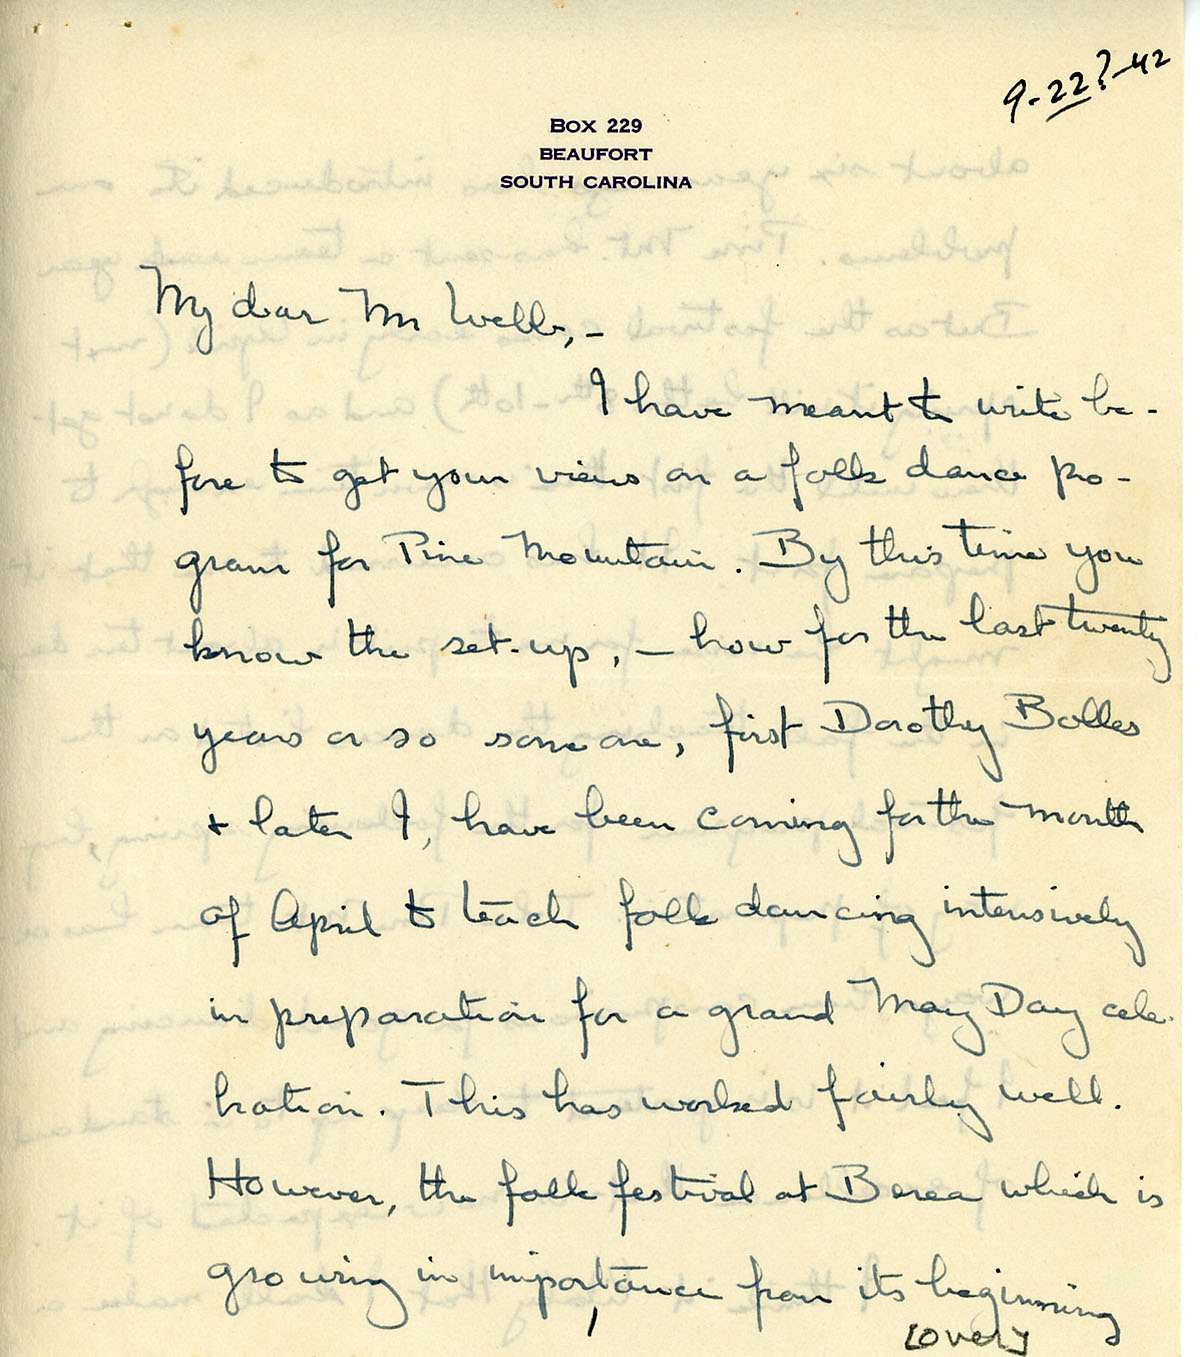 9-22?-42
BOX 229
BEAUFORT
SOUTH CAROLINA
My dear Mr Wells,-
I have meant to write be-
fore to get your views on a folk dance pro-
gram for Pine Mountain. By this time you
know the set-up, - how for the last twenty
years or so some one, first Dorothy Bolles
+ later I, have been coming for the month
of April to teach folk dancing intensively
in preparation for a grand May Day cele-
bration. This has worked fairly well.
However, the folk festival at Berea which is
growing in importance from its beginning